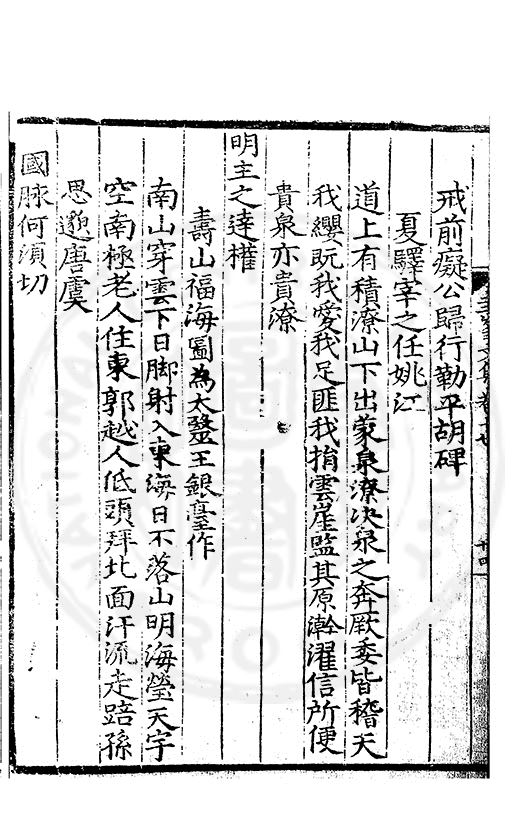 戒前癡公歸行勒平胡碑
夏驛宰之任姚江
道上有積潦山下出蒙泉潦决泉之奔厥委皆稽天
我纓既我愛我足匪我捐雲崖監其原澣濯信所便
貴泉亦貴潦
明主之達權
壽山福海圖為太醫王銀臺作
南山穿雲下日脚射入東海日不落山明海瑩天宇
空南極老人住東郭越人低頭拜北面汗流走踣孫
思邈唐虞
國脉何須切
文集卷十七
十四